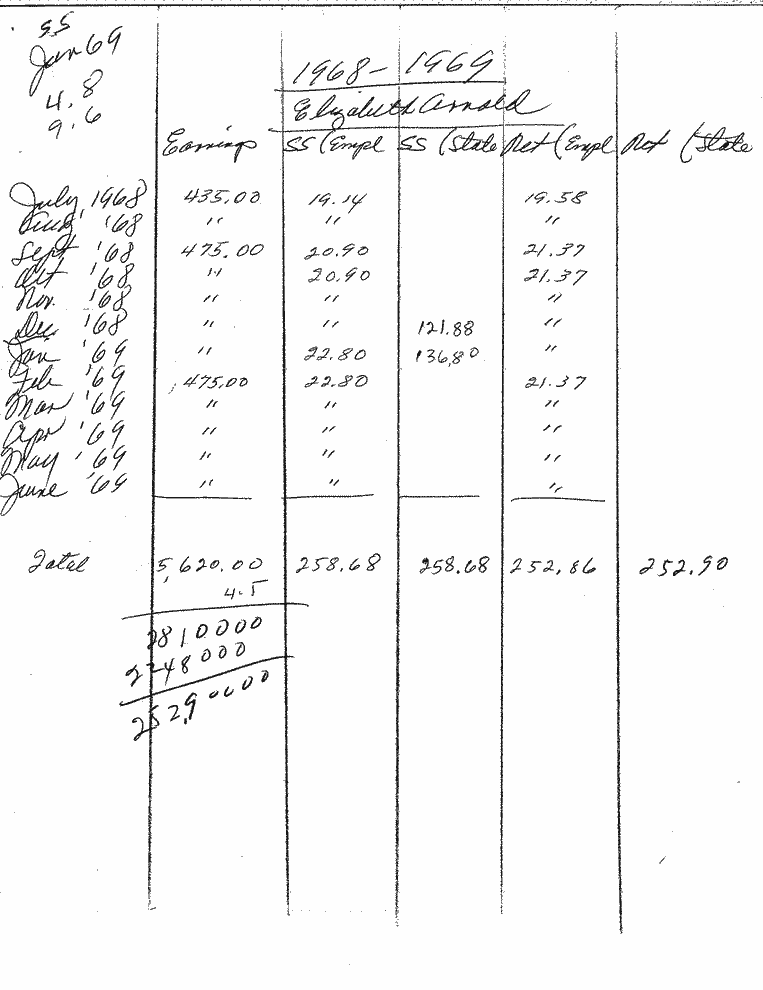 SS
Jan 69
4.8
9.6
1968-1969
Elizabeth Arnold
Earnings SS (Empl SS (State Ret (Empl Ret (State
July, 1968 435.00 19.14 19.58
Aug '68 " " "
Sept '68 475.00 20.90 21.37
Oct '68 " 20.90 21.37
Nov. '68 " " "
Dec '68 " " 121.88 "
Jan '69 " 22.80 136.80 "
Feb '69 475.00 22.80 21.37
Mar '69 " " "
Apr '69 " " "
May '69 " " "
June '69 " " "
Total 5,620.00 258.68 258.68 252.86 252.90
4.5
2810000
2248000
252.90000